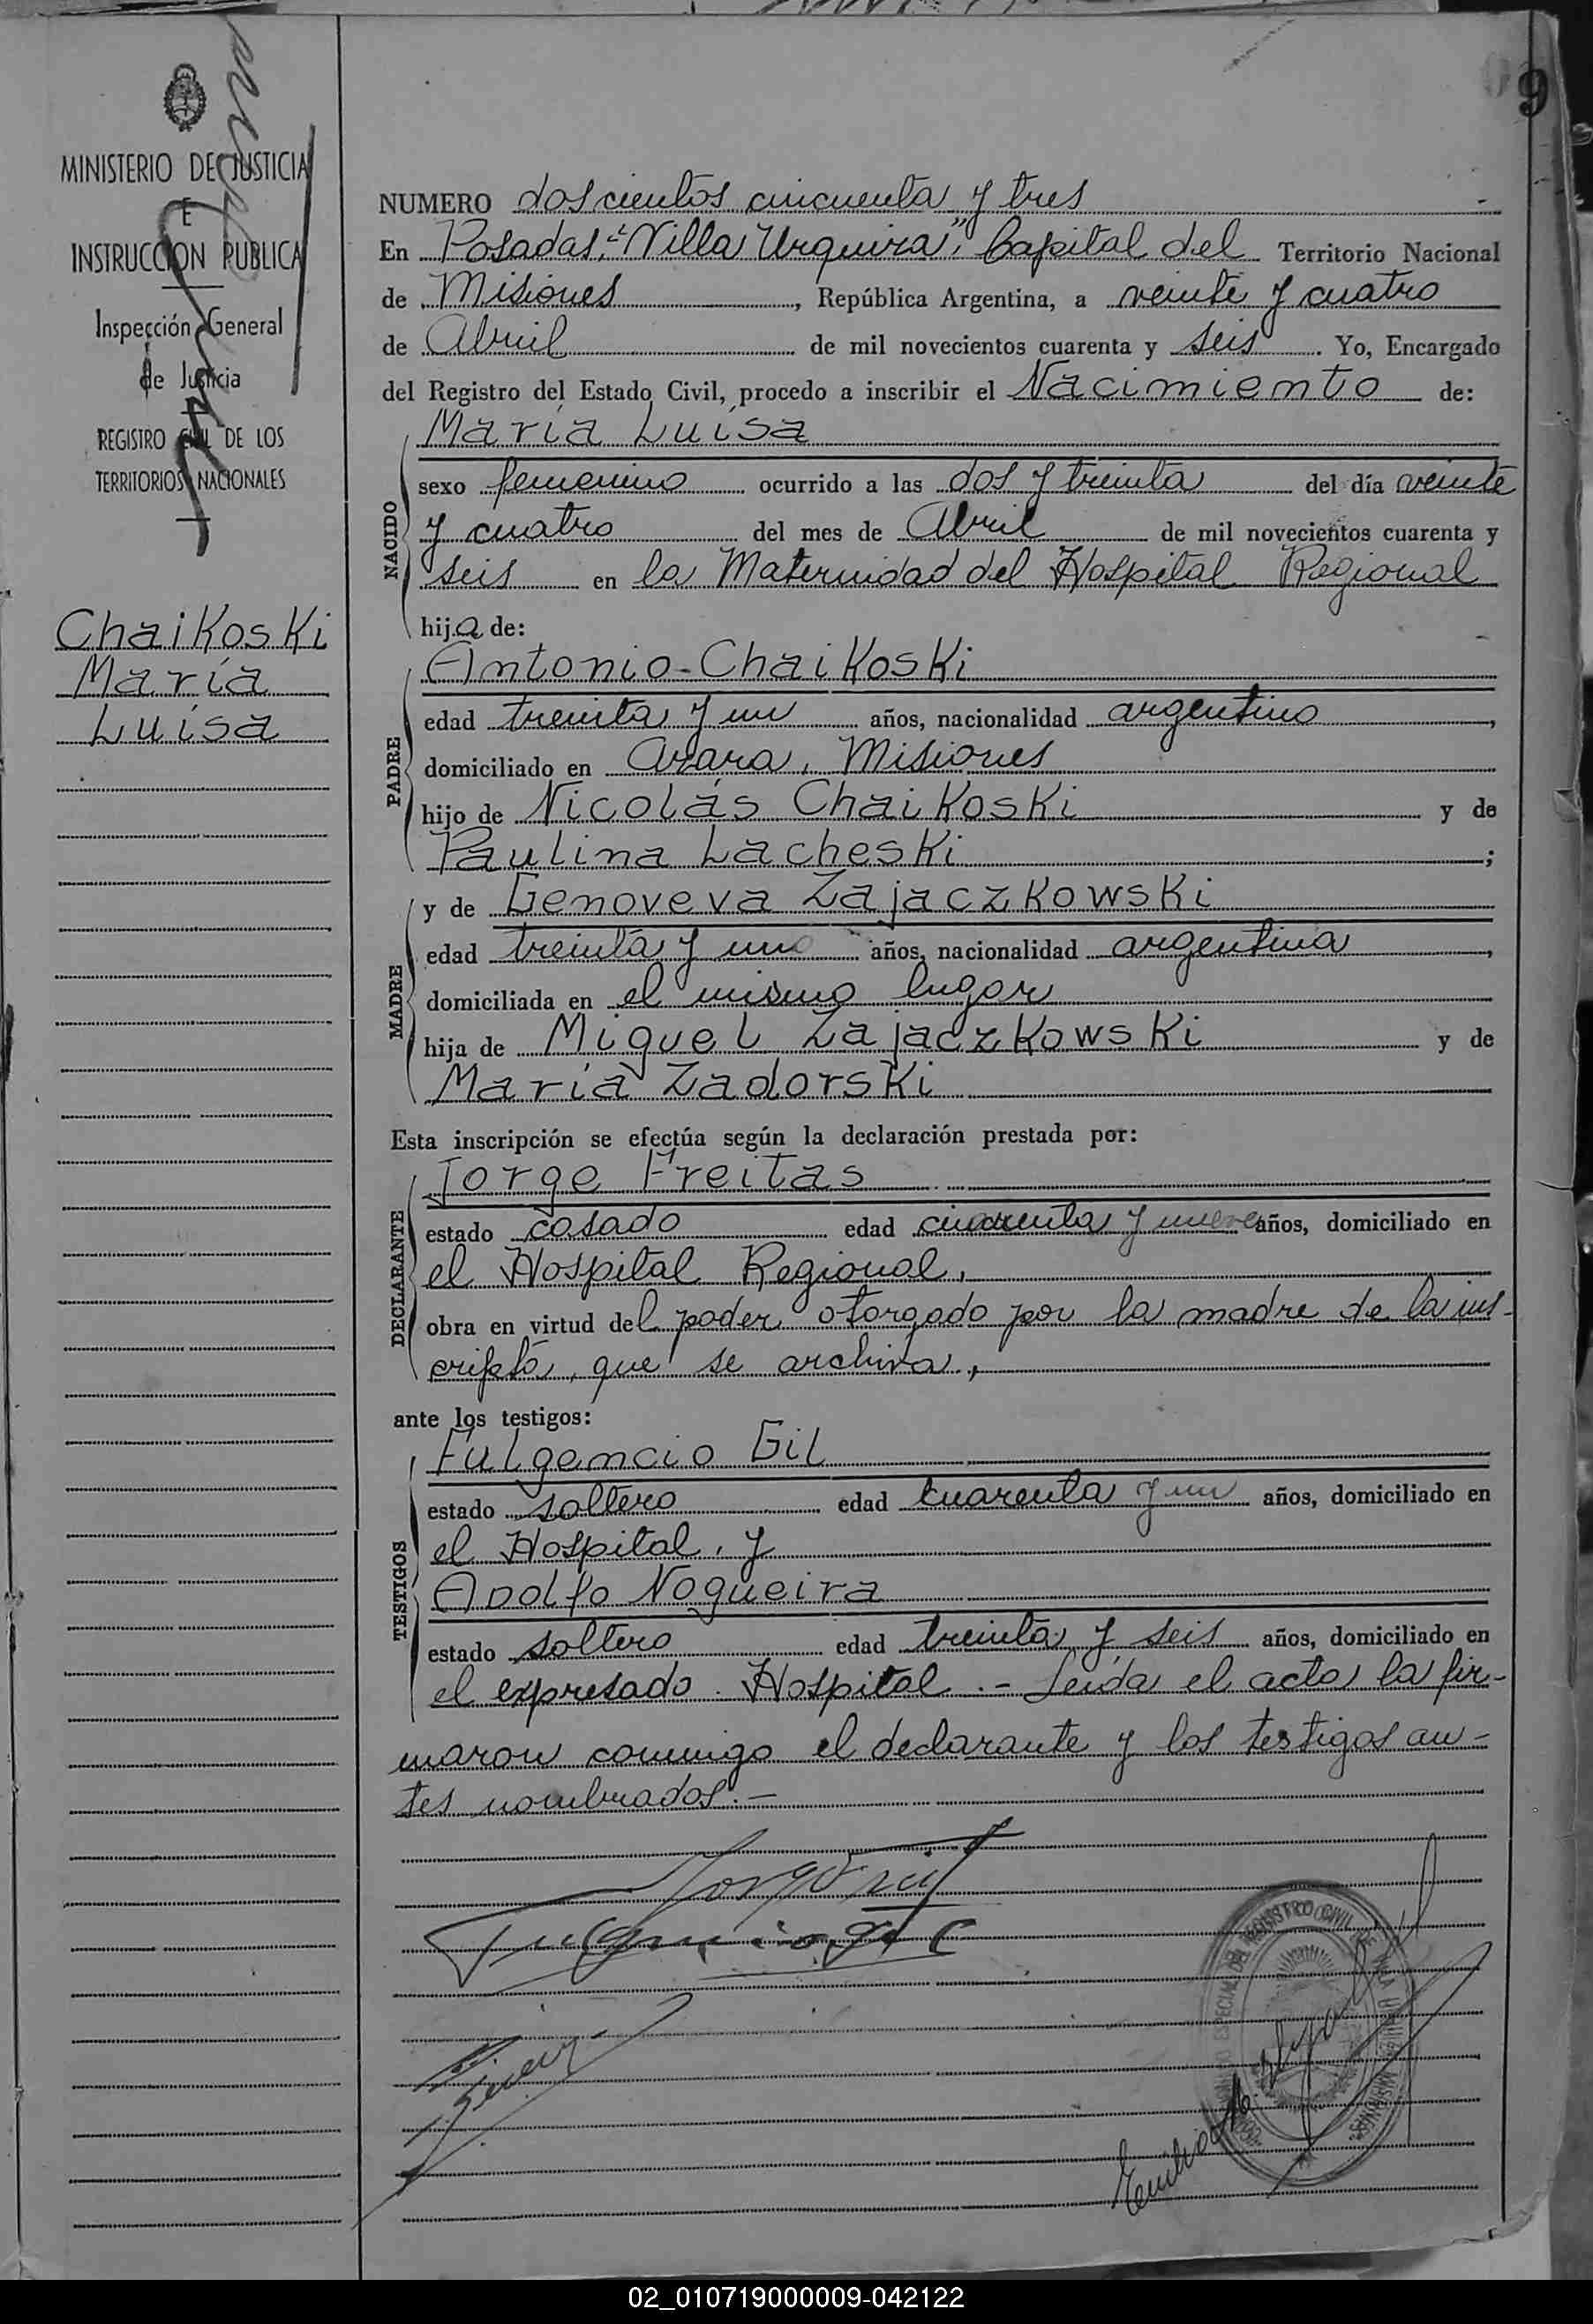 9
MINISTERIO DE JUSTICIA
E
INSTRUCCION PUBLICA
Inspección General
de Justicia
REGISTRO CIVIL DE LOS
TERRITORIOS NACIONALES
Chaikoski
María
Luisa
NUMERO doscientos cincuenta y tres
En Posadas, "Villa Urquiza", Capital del Territorio Nacional
de Misiones, República Argentina, a veinte y cuatro
de Abril de mil novecientos cuarenta y seis. Yo, Encargado
del Registro del Estado Civil, procedo a inscribir el Nacimiento de:
María Luisa
NACIDO
sexo femenino ocurrido a las dos y treinta del día veinte
y cuatro del mes de Abril de mil novecientos cuarenta y
seis en la Maternidad del Hospital Regional
hija de:
Antonio Chaikoski
PADRE
edad treinta y un años, nacionalidad argentino,
domiciliado en Azara, Misiones
hijo de Nicolás Chaikoski y de
Paulina Lacheski;
y de Genoveva Zajaczkowski
MADRE
edad treinta y uno años, nacionalidad argentina,
domiciliada en el mismo lugar
hija de Miguel Zajaczkowski y de
María Zadorski
Esta inscripción se efectúa según la declaración prestada por:
Jorge Freitas
DECLARANTE
estado casado edad cuarenta y nueve años, domiciliado en
el Hospital Regional,
obra en virtud del poder otorgado por la madre de la ins-
cripta, que se archiva,
ante los testigos:
Fulgencio Gil
TESTIGOS
estado soltero edad cuarenta y un años, domiciliado en
el Hospital, y
Adolfo Nogueira
estado soltero edad treinta y seis años, domiciliado en
el expresado Hospital.- Leída el acta la fir-
maron conmigo el declarante y los testigos an-
tes nombrados.-
02_010719000009-042122